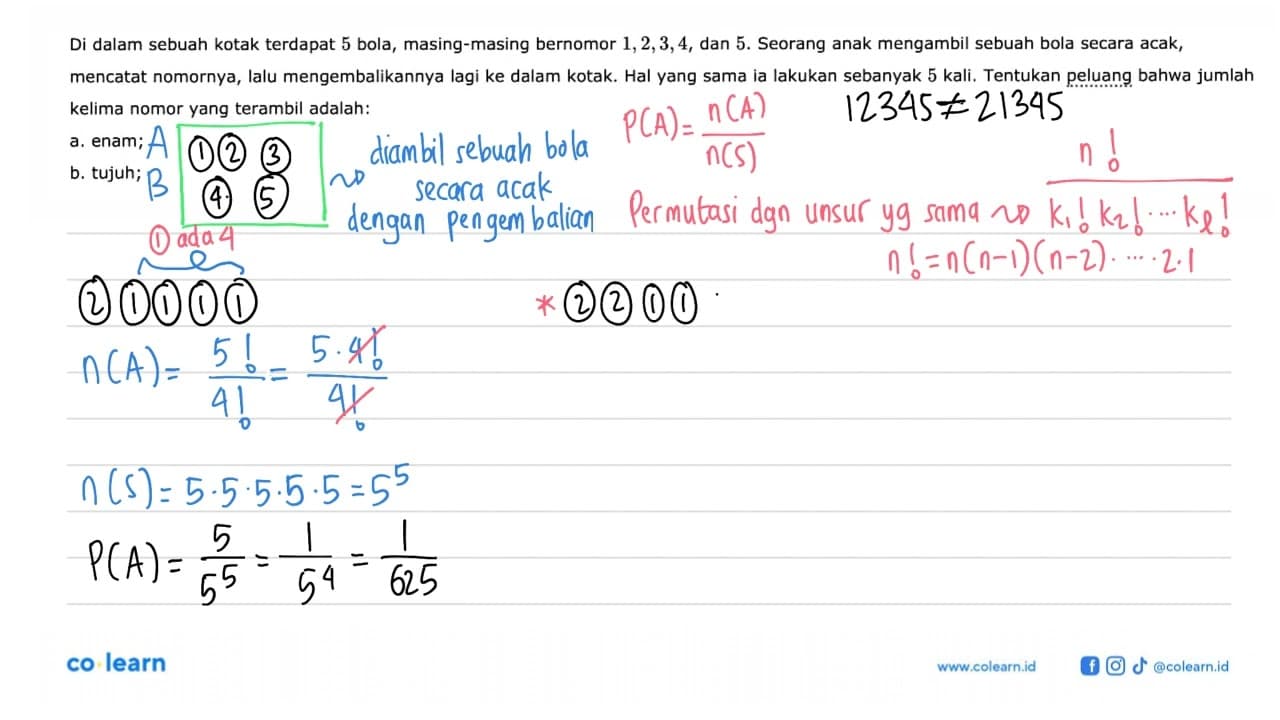 Di dalam sebuah kotak terdapat 5 bola, masing-masing bernomor 1, 2, 3, 4, dan 5. Seorang anak mengambil sebuah bola secara acak,
mencatat nomornya, lalu mengembalikannya lagi ke dalam kotak. Hal yang sama ia lakukan sebanyak 5 kali. Tentukan peluang bahwa jumlah
kelima nomor yang terambil adalah:
a. enam; A
b. tujuh; B
① ② ③
④ ⑤
① ada 4
diambil sebuah bola
secara acak
dengan pengembalian
P(A) = n(A)/n(S)
12345 ≠ 21345
Permutasi dgn unsur yg sama ⇝ n!/(k₁! k₂! ... kₗ!)
n! = n(n-1)(n-2). ... .2.1
② ① ① ① ①
* ② ② ① ①
n(A) = 5!/4! = 5.4!/4!
n(S) = 5.5.5.5.5 = 5⁵
P(A) = 5/5⁵ = 1/5⁴ = 1/625
co learn
www.colearn.id
@colearn.id